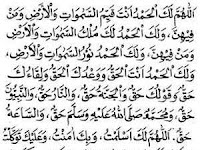 اَللّٰهُمَّ لَكَ الْحَمْدُ اَنْتَ قَيِّمُ السَّمٰوَاتِ وَالْاَرْضِ وَمَنْ
فِيْهِنَّ، وَلَكَ الْحَمْدُ لَكَ مُلْكُ السَّمٰوَاتِ وَالْاَرْضِ
وَمَنْ فِيْهِنَّ، وَلَكَ الْحَمْدُ نُوْرُ السَّمٰوَاتِ وَالْاَرْضِ،
وَلَكَ الْحَمْدُ اَنْتَ الْحَقُّ وَوَعْدُكَ الْحَقُّ وَلِقَاءُكَ
حَقٌّ، وَقَوْلُكَ حَقٌّ، وَالْجَنَّةُ حَقٌّ، وَالنَّارُ حَقٌّ، وَالنَّبِيُّوْنَ
حَقٌّ، وَمُحَمَّدٌ صَلَّى اللهُ عَلَيْهِ وَسَلَّمَ حَقٌّ، وَالسَّاعَةُ
حَقٌّ، اَللّٰهُمَّ لَكَ اَسْلَمْتُ، وَبِكَ اٰمَنْتُ، وَعَلَيْكَ تَوَكَّلْتُ